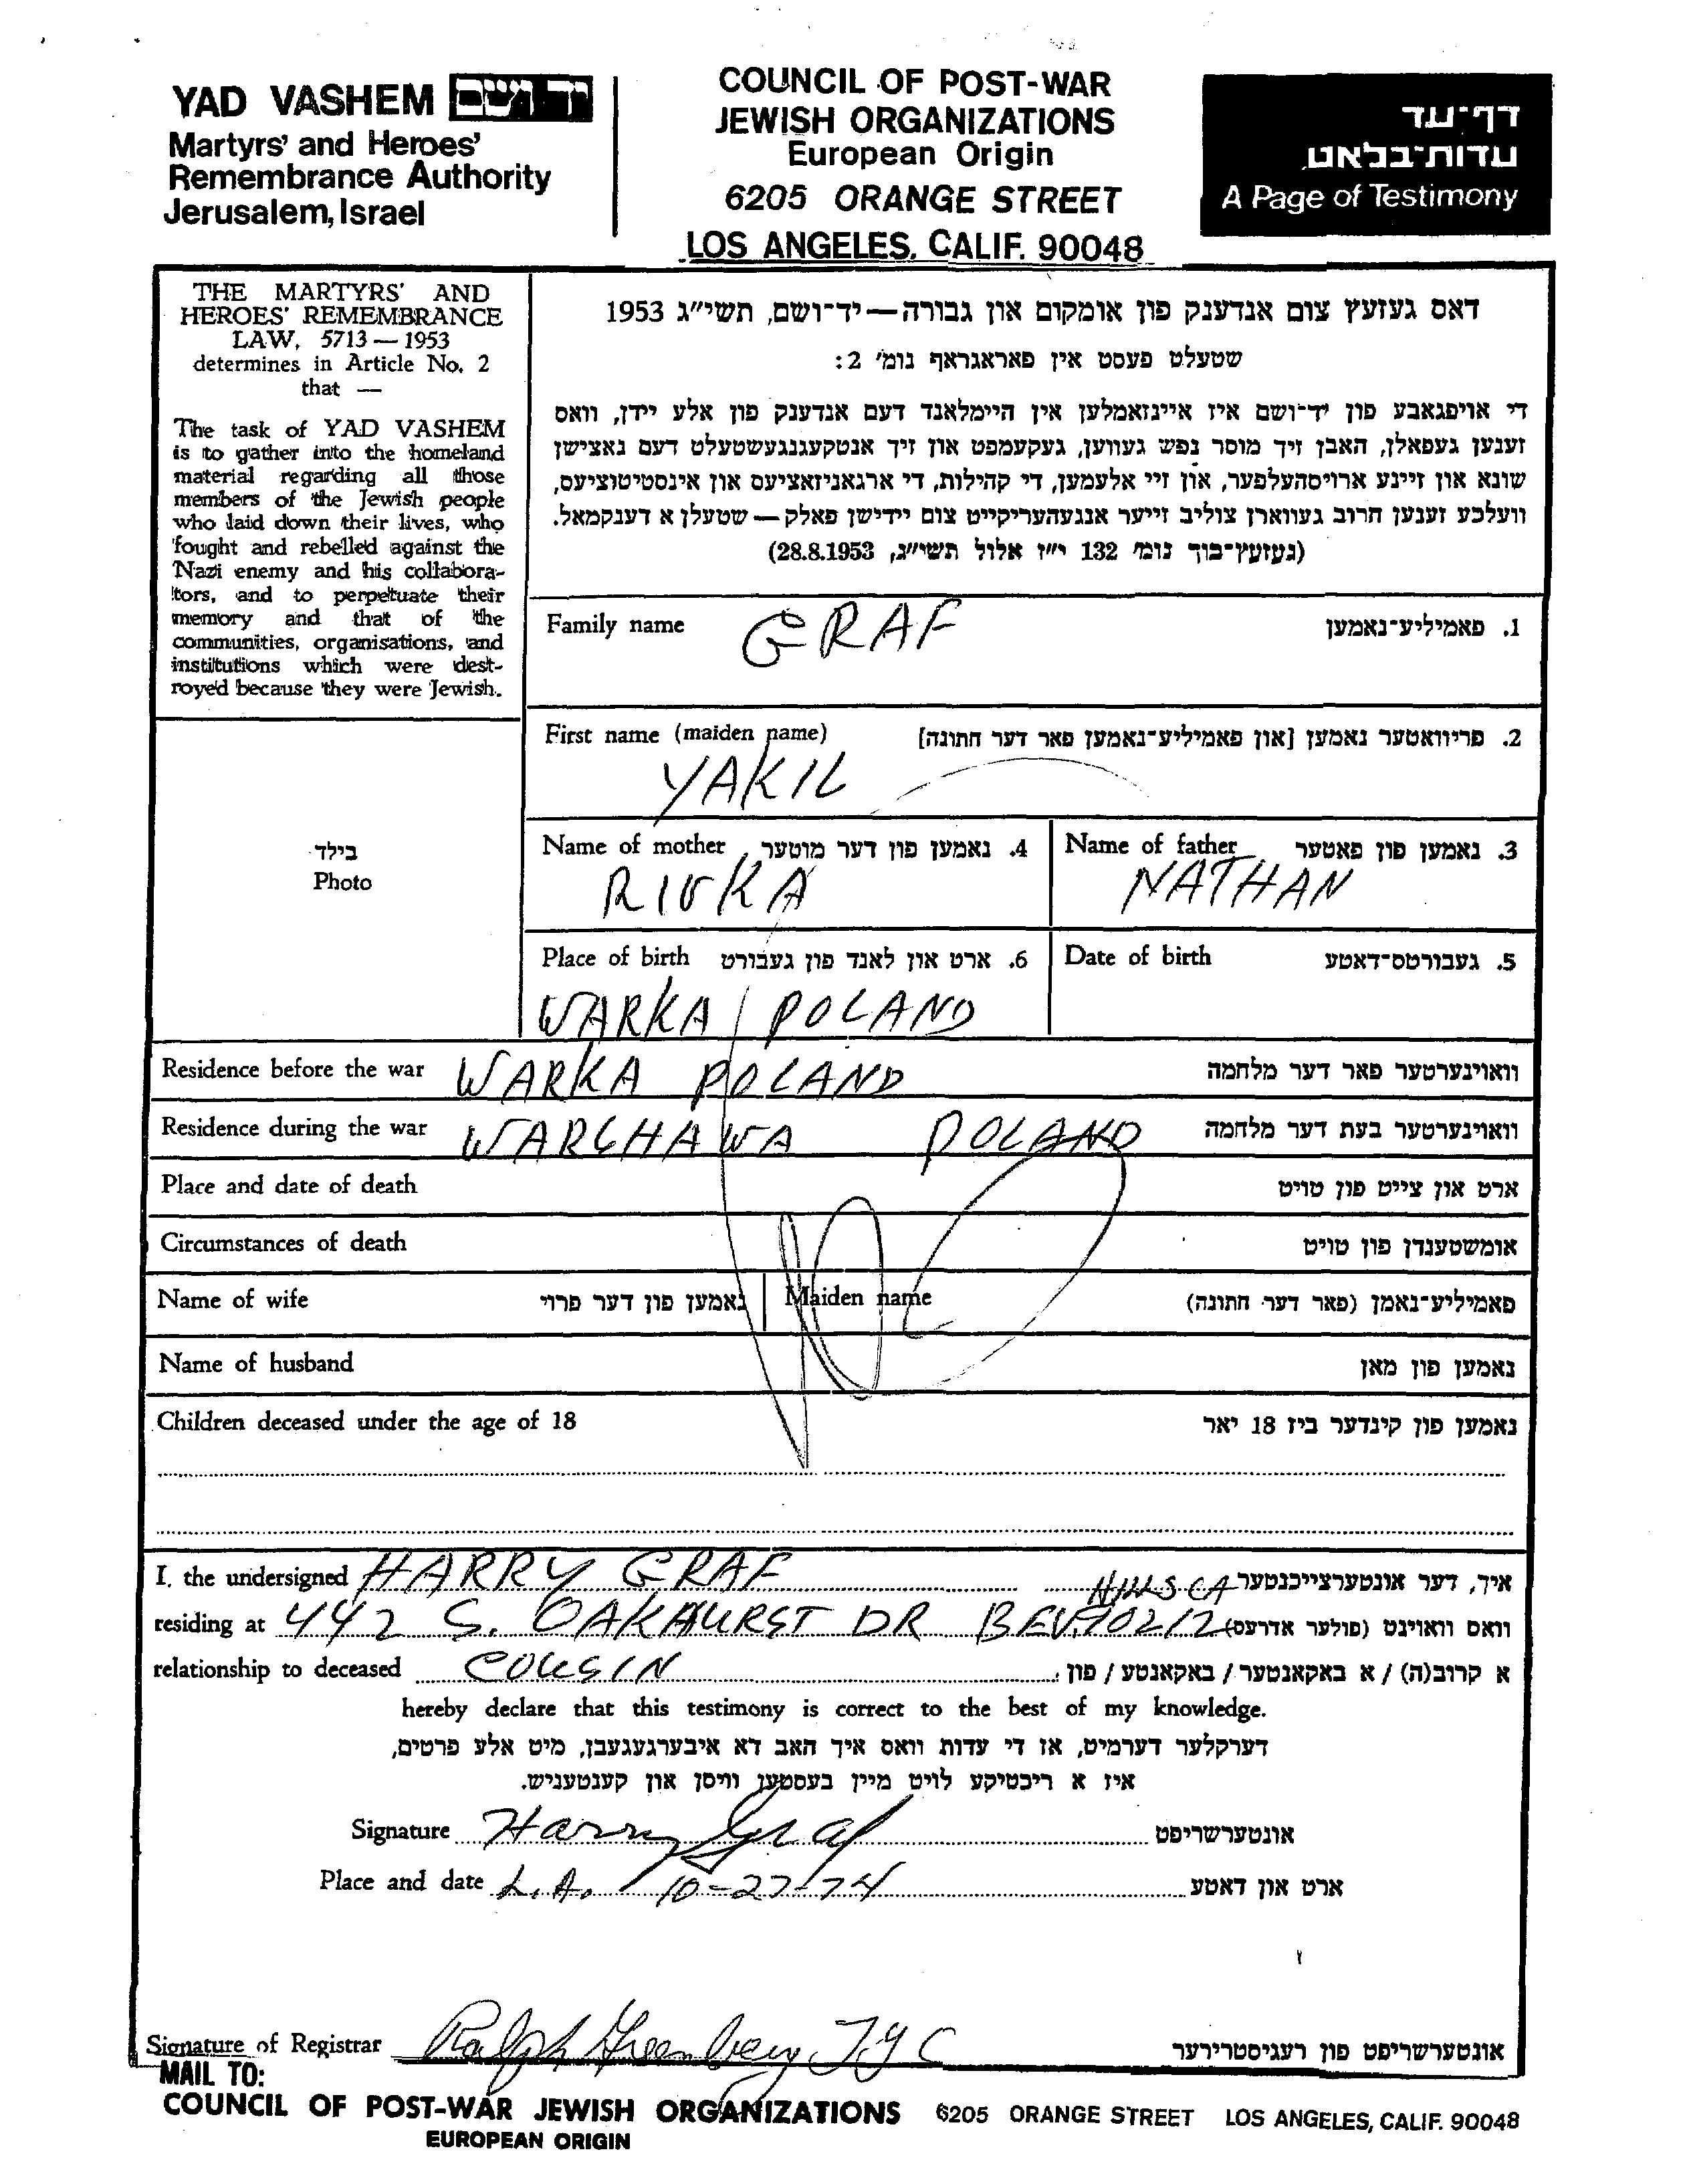 YAD VASHEM יד ושם
Martyrs' and Heroes'
Remembrance Authority
Jerusalem, Israel
COUNCIL OF POST-WAR
JEWISH ORGANIZATIONS
European Origin
6205 ORANGE STREET
LOS ANGELES, CALIF. 90048
דף-עד
עדות-בלאט
A Page of Testimony
THE MARTYRS' AND
HEROES' REMEMBRANCE
LAW, 5713 — 1953
determines in Article No. 2
that —
The task of YAD VASHEM
is to gather into the homeland
material regarding all those
members of the Jewish people
who laid down their lives, who
fought and rebelled against the
Nazi enemy and his collabora-
tors, and to perpetuate their
memory and that of the
communities, organisations, and
institutions which were dest-
royed because they were Jewish.
דאס געזעץ צום אנדענק פון אומקום און גבורה — יד-ושם, תשי"ג 1953
שטעלט פעסט אין פאראגראף נומ' 2:
די אויפגאבע פון יד-ושם איז איינזאמלען אין היימלאנד דעם אנדענק פון אלע יידן, וואס
זענען געפאלן, האבן זיך מוסר נפש געווען, געקעמפט און זיך אנטקעגנגעשטעלט דעם נאצישן
שונא און זיינע ארויסהעלפער, און זיי אלעמען, די קהילות, די ארגאניזאציעס און אינסטיטוציעס,
וועלכע זענען חרוב געווארן צוליב זייער אנגעהעריקייט צום יידישן פאלק — שטעלן א דענקמאל.
(געזעץ-בוך נומ' 132 י"ז אלול תשי"ג, 28.8.1953)
Family name GRAF 1. פאמיליע-נאמען
First name (maiden name) 2. פריוואטער נאמען [און פאמיליע-נאמען פאר דער חתונה]
YAKIL
בילד
Photo
Name of mother 4. נאמען פון דער מוטער Name of father 3. נאמען פון פאטער
RIVKA NATHAN
Place of birth 6. ארט און לאנד פון געבורט Date of birth 5. געבורטס-דאטע
WARKA POLAND
Residence before the war WARKA POLAND וואוינערטער פאר דער מלחמה
Residence during the war WARSHAWA POLAND וואוינערטער בעת דער מלחמה
Place and date of death ארט און צייט פון טויט
Circumstances of death אומשטענדן פון טויט
Name of wife נאמען פון דער פרוי Maiden name פאמיליע-נאמן (פאר דער חתונה)
Name of husband נאמען פון מאן
Children deceased under the age of 18 נאמען פון קינדער ביז 18 יאר
I, the undersigned HARRY GRAF HILLS CA איך, דער אונטערצייכנטער
residing at 442 S. OAKHURST DR BEV. 90212 וואס וואוינט (פולער אדרעס)
relationship to deceased COUSIN א קרוב(ה) / א באקאנטער / באקאנטע / פון
hereby declare that this testimony is correct to the best of my knowledge.
דערקלער דערמיט, אז די עדות וואס איך האב דא איבערגעגעבן, מיט אלע פרטים,
איז א ריכטיקע לויט מיין בעסטען וויסן און קענטעניש.
Signature Harry Graf אונטערשריפט
Place and date L.A. 10-27-74 ארט און דאטע
Signature of Registrar Ralph Greenberg אונטערשריפט פון רעגיסטרירער
MAIL TO:
COUNCIL OF POST-WAR JEWISH ORGANIZATIONS 6205 ORANGE STREET LOS ANGELES, CALIF. 90048
EUROPEAN ORIGIN